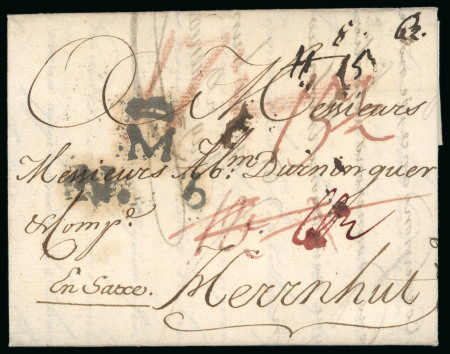 8. 6 2.
15
Messieurs
M
Messieurs Abm. Durninguer
6
& Comp.e
En Saxe. Herrnhut